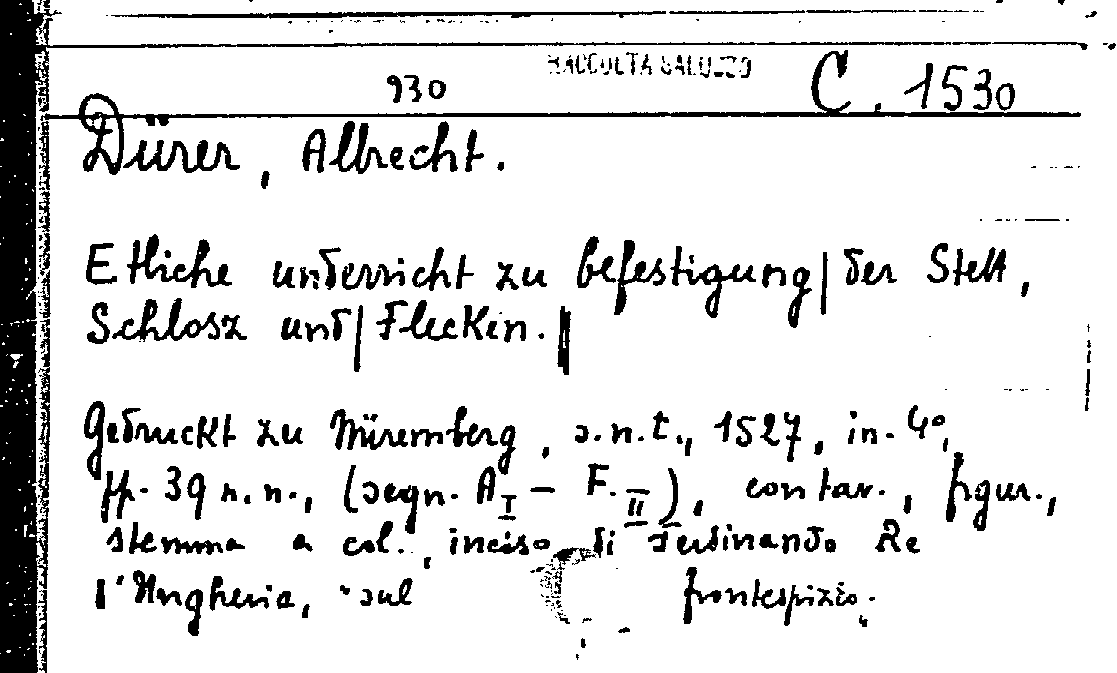 RACCOLTA SALUZZO
930 C. 1530
Dürer, Albrecht.
Etliche underricht zu befestigung| der Stett,
Schlosz und| Flecken.||
Gedruckt zu Nüremberg, s.n.t., 1527, in-4°,
ff. 39 n.n., (segn. A I – F. II), con tav., figur.,
stemma a col., inciso di Ferdinando Re
d'Ungheria, sul frontespizio.